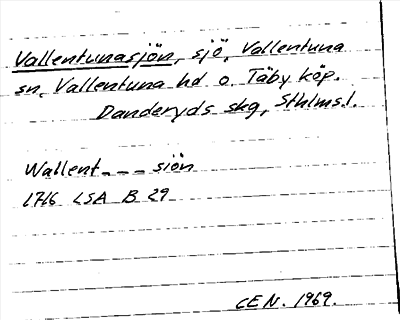 Vallentunasjön, sjö, Vallentuna
sn, Vallentuna hd o. Täby köp.
Danderyds skg, Sthlms l.
Wallent--- siön
1716 LSA B 29
CEN. 1969.